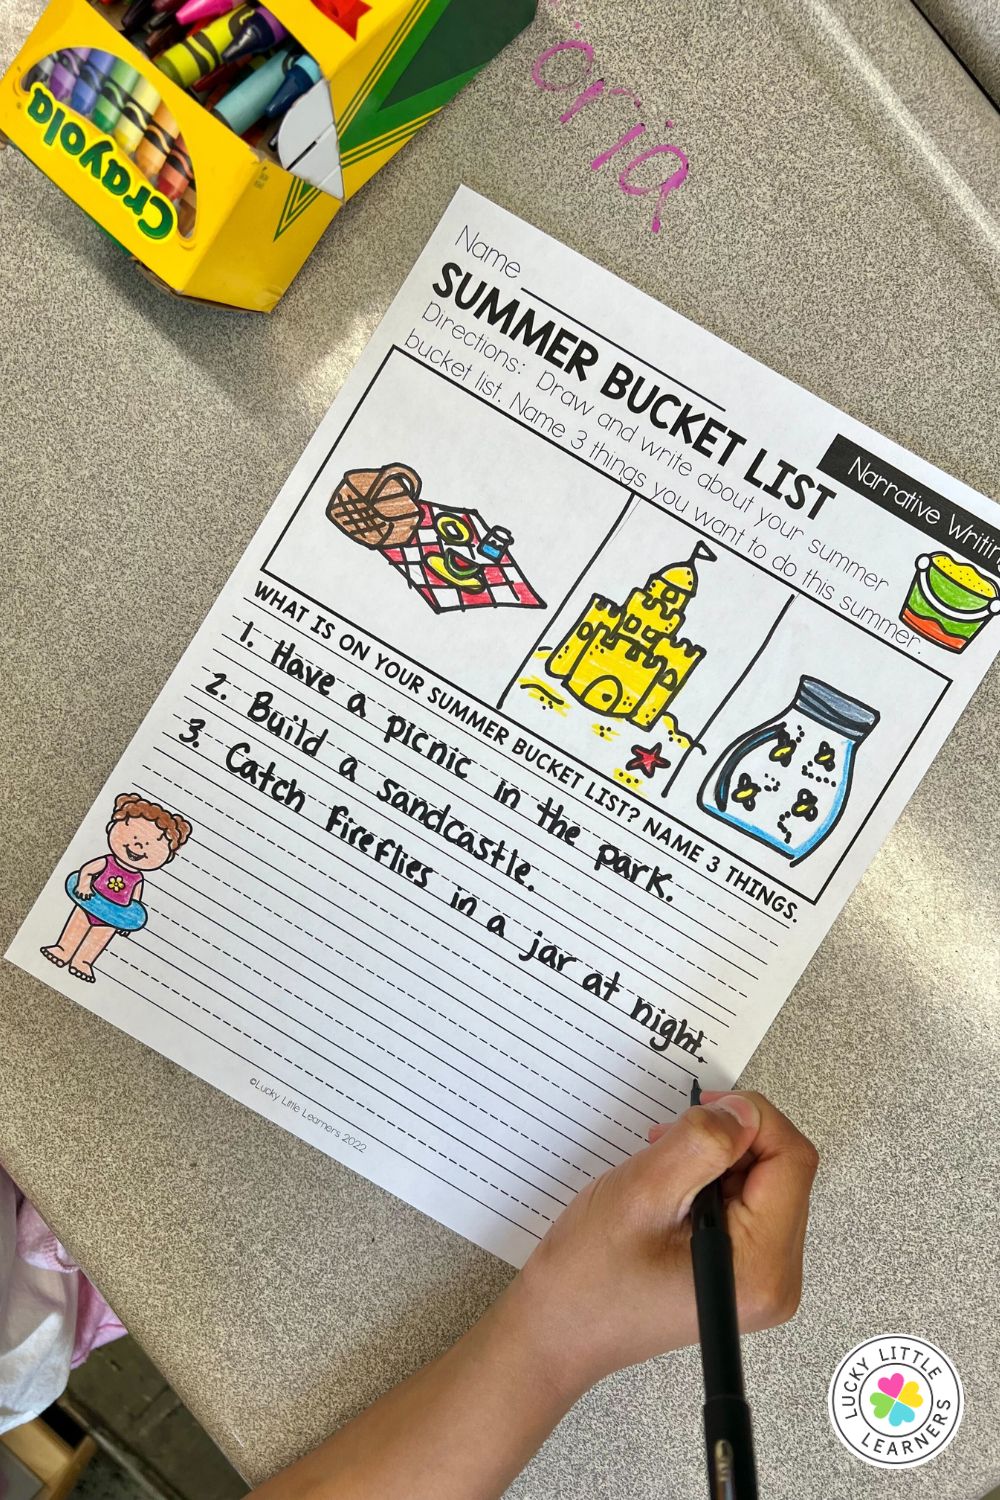 Crayola
oria
Name
SUMMER BUCKET LIST
Narrative Writin
Directions: Draw and write about your summer
bucket list. Name 3 things you want to do this summer.
WHAT IS ON YOUR SUMMER BUCKET LIST? NAME 3 THINGS.
1. Have a picnic in the park.
2. Build a sandcastle.
3. Catch fireflies in a jar at night.
©Lucky Little Learners 2022
LUCKY LITTLE
LEARNERS